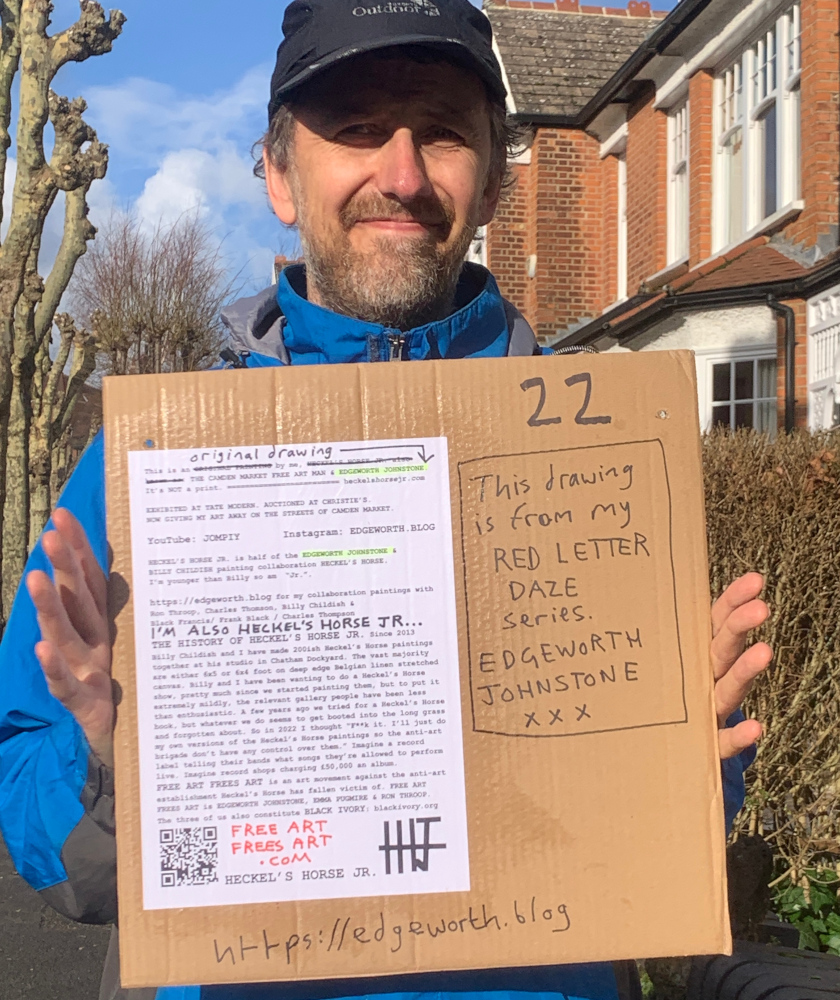 Outdoor
22
original drawing
This is an ORIGINAL PAINTING by me, HECKEL'S HORSE JR. also
known as THE CAMDEN MARKET FREE ART MAN & EDGEWORTH JOHNSTONE
It's NOT a print. heckelshorsejr.com
EXHIBITED AT TATE MODERN. AUCTIONED AT CHRISTIE'S.
NOW GIVING MY ART AWAY ON THE STREETS OF CAMDEN MARKET.
YouTube: JOMPIY Instagram: EDGEWORTH.BLOG
HECKEL'S HORSE JR. is half of the EDGEWORTH JOHNSTONE &
BILLY CHILDISH painting collaboration HECKEL'S HORSE.
I'm younger than Billy so am "Jr.".
https://edgeworth.blog for my collaboration paintings with
Ron Throop, Charles Thomson, Billy Childish &
Black Francis/ Frank Black / Charles Thompson
I'M ALSO HECKEL'S HORSE JR...
THE HISTORY OF HECKEL'S HORSE JR. Since 2013
Billy Childish and I have made 200ish Heckel's Horse paintings
together at his studio in Chatham Dockyard. The vast majority
are either 6x5 or 6x4 foot on deep edge Belgian linen stretched
canvas. Billy and I have been wanting to do a Heckel's Horse
show, pretty much since we started painting them, but to put it
extremely mildly, the relevant gallery people have been less
than enthusiastic. A few years ago we tried for a Heckel's Horse
book, but whatever we do seems to get booted into the long grass
and forgotten about. So in 2022 I thought "F**k it. I'll just do
my own versions of the Heckel's Horse paintings so the anti-art
brigade don't have any control over them." Imagine a record
label telling their bands what songs they're allowed to perform
live. Imagine record shops charging £50,000 an album.
FREE ART FREES ART is an art movement against the anti-art
establishment Heckel's Horse has fallen victim of. FREE ART
FREES ART is EDGEWORTH JOHNSTONE, EMMA PUGMIRE & RON THROOP.
The three of us also constitute BLACK IVORY: blackivory.org
FREE ART
FREES ART
.COM
HECKEL'S HORSE JR.
This drawing
is from my
RED LETTER
DAZE
series.
EDGEWORTH
JOHNSTONE
x x x
https://edgeworth.blog